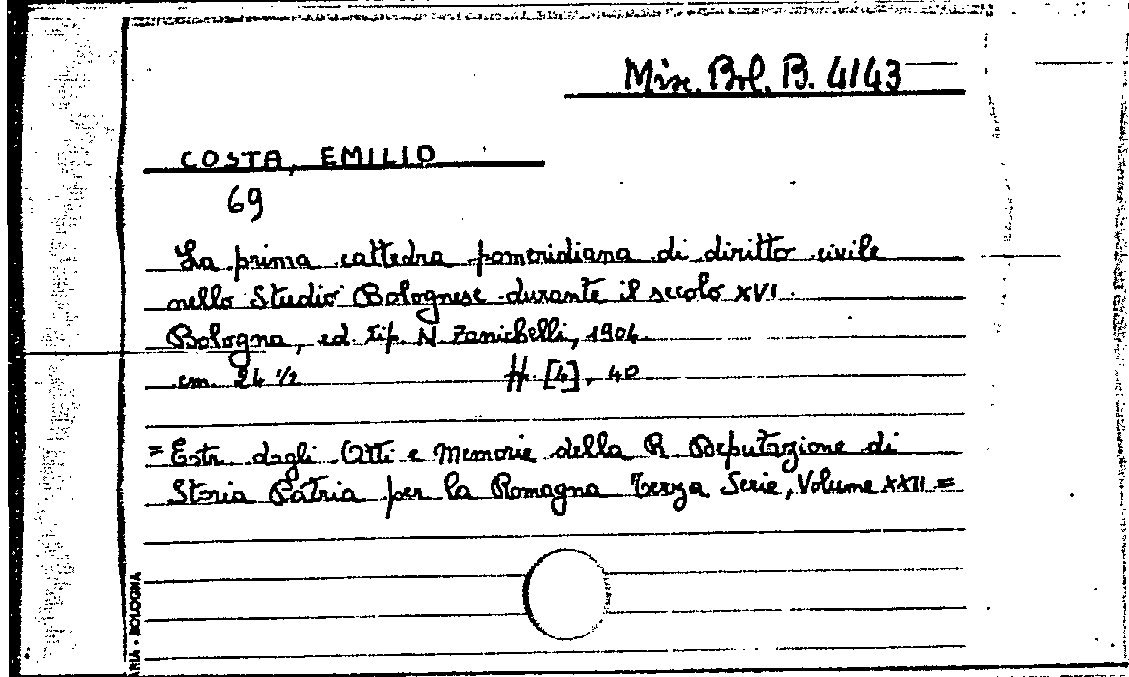 Misc. Bol. B. 4143
COSTA, EMILIO
69
La prima cattedra pomeridiana di diritto civile
nello Studio Bolognese durante il secolo XVI.
Bologna, ed. tip. N. Zanichelli, 1904.
cm. 24 1/2 ff. [4], 40
= Estr. dagli Atti e Memorie della R. Deputazione di
Storia Patria per la Romagna Terza Serie, Volume XXII =
ARIA - BOLOGNA